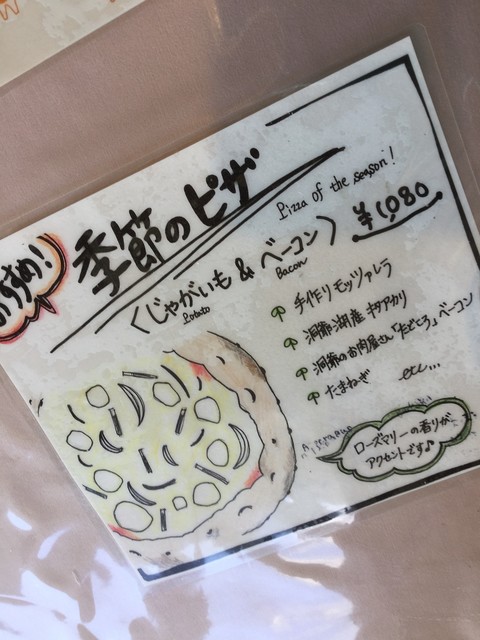 すすめ!
季節のピザ
Pizza of the season!
¥1,080
〈じゃがいも & ベーコン〉
Potato
Bacon
手作りモッツァレラ
洞爺湖産キタアカリ
洞爺のお肉屋さん「たどころ」ベーコン
たまねぎ
etc...
ローズマリーの香りが
アクセントです♪